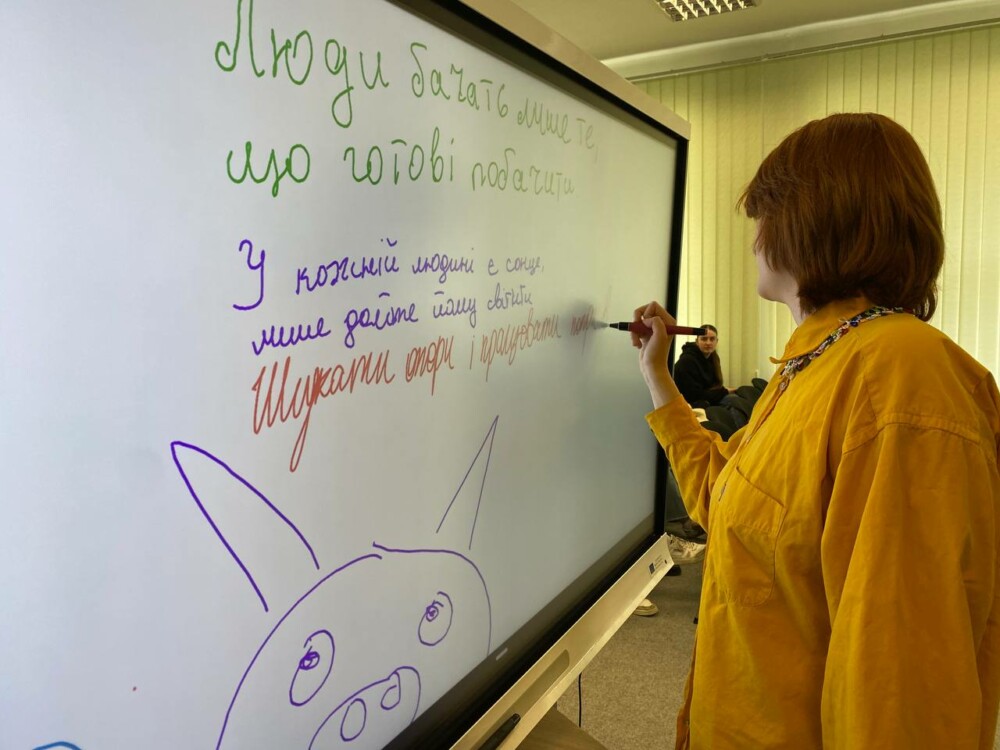 Люди бачать лише те,
що готові побачити
У кожній людині є сонце,
лише дайте йому світити
Шукати опори і працювати